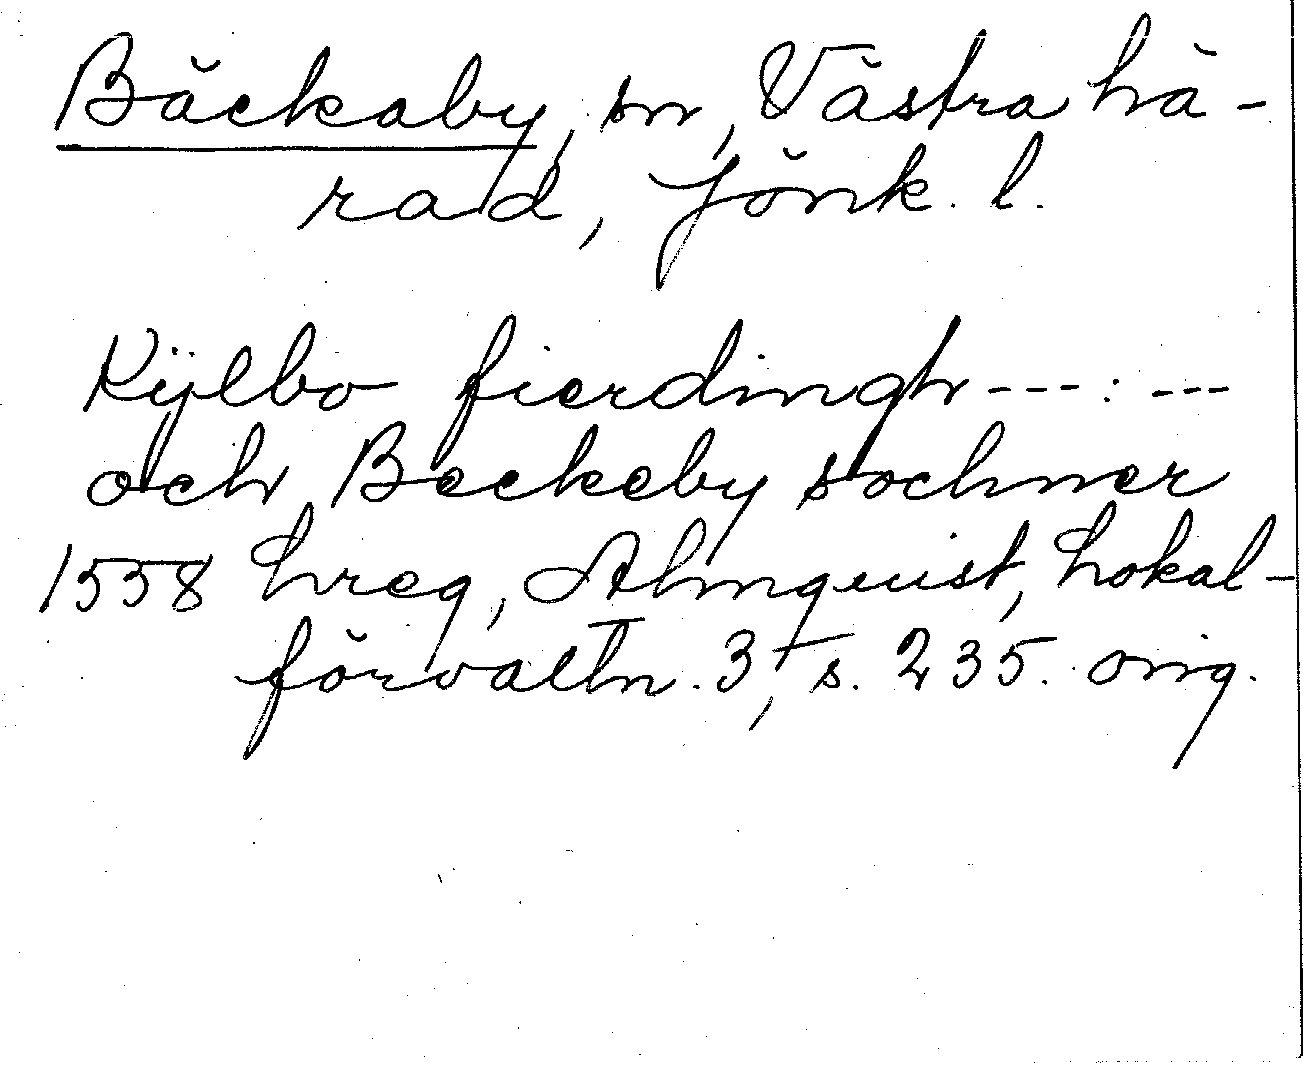 Bäckaby, sn, Västra hä-
rad, Jönk. l.
Kÿlbo fierdingh ---:---
och Beckeby sochner
1558 hreg, Almquist, Lokal-
förvaltn. 3, s. 235. orig.